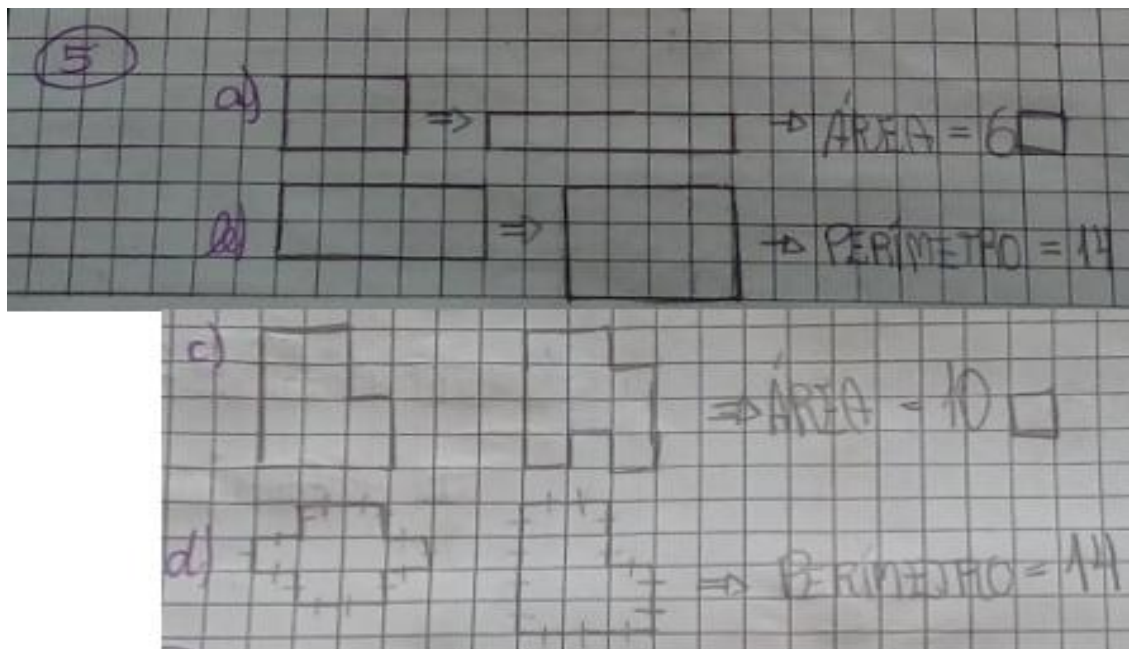 5
a) ⇒ → ÁREA = 6
b) ⇒ → PERÍMETRO = 14
c) ⇒ ÁREA = 10
d) ⇒ PERÍMETRO = 14